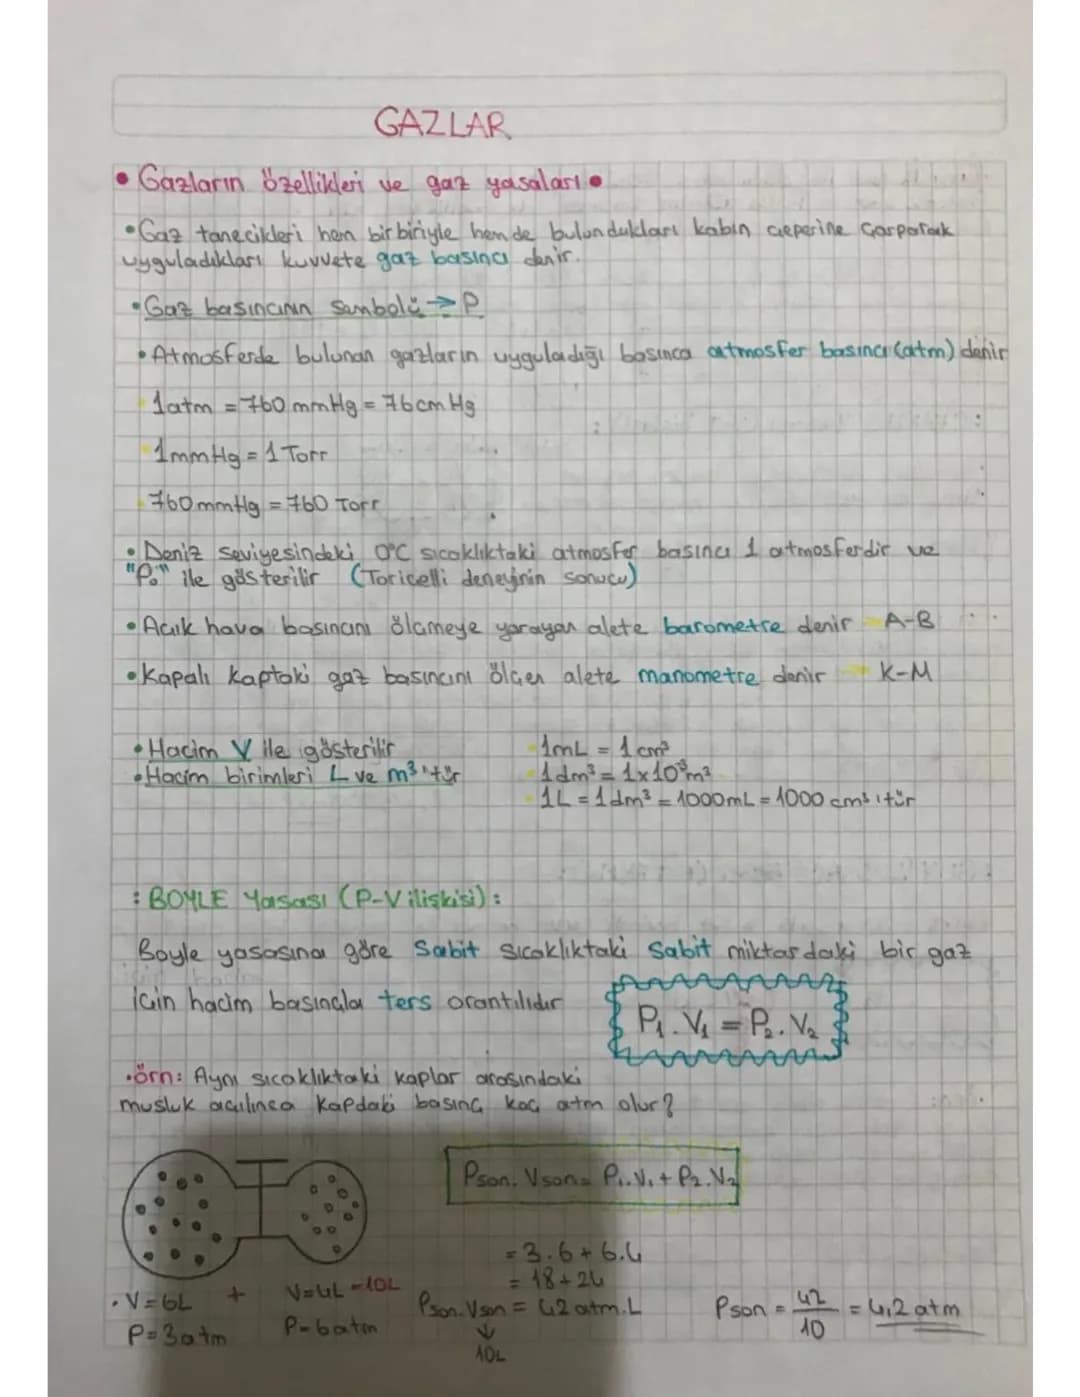 GAZLAR
• Gazların özellikleri ve gaz yasaları •
• Gaz tanecikleri hem birbiriyle hemde bulundukları kabın çeperine çarparak
uyguladıkları kuvvete gaz basıncı denir.
• Gaz basıncının Sembolü → P
• Atmosferde bulunan gazların uyguladığı basınca atmosfer basıncı (atm) denir
1atm = 760 mmHg = 76 cm Hg
1mmHg = 1 Torr
760 mmHg = 760 Torr
• Deniz seviyesindeki 0°C sıcaklıktaki atmosfer basıncı 1 atmosferdir ve
"P₀" ile gösterilir (Toricelli deneyinin sonucu)
• Açık hava basıncını ölçmeye yarayan alete barometre denir A-B
• Kapalı kaptaki gaz basıncını ölçen alete manometre denir K-M
• Hacim V ile gösterilir
• Hacim birimleri L ve m³'tür
1mL = 1 cm³
1dm³ = 1x10⁻³m³
1L = 1dm³ = 1000mL = 1000 cm³'tür
: BOYLE Yasası (P-V ilişkisi) :
Boyle yasasına göre Sabit sıcaklıktaki Sabit miktardaki bir gaz
için hacim basınçla ters orantılıdır
P₁.V₁ = P₂.V₂
•örn: Aynı sıcaklıktaki kaplar arasındaki
musluk açılınca Kapdaki basınç kaç atm olur?
Pson.Vson = P₁.V₁ + P₂.V₂
= 3.6 + 6.4
= 18 + 24
• V=6L + V=4L = 10L
P=3atm P=6atm
Pson.Vson = 42 atm.L
↓
10L
Pson = 42/10 = 4,2 atm